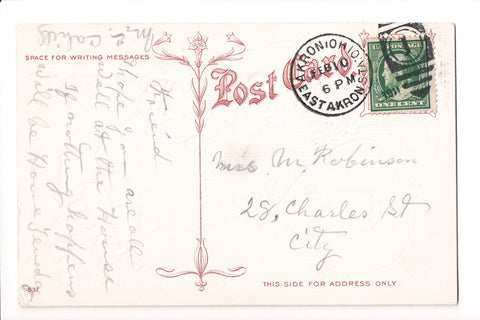 SPACE FOR WRITING MESSAGES
Post Card
AKRON, OHIO
FEB 10
6 PM
EAST AKRON STA
U.S. POSTAGE
ONE CENT
Friend
I hope you are all
well at the House
if nothing happens
will be Home
Mrs. M. Robinson
28, Charles St
City
THIS SIDE FOR ADDRESS ONLY